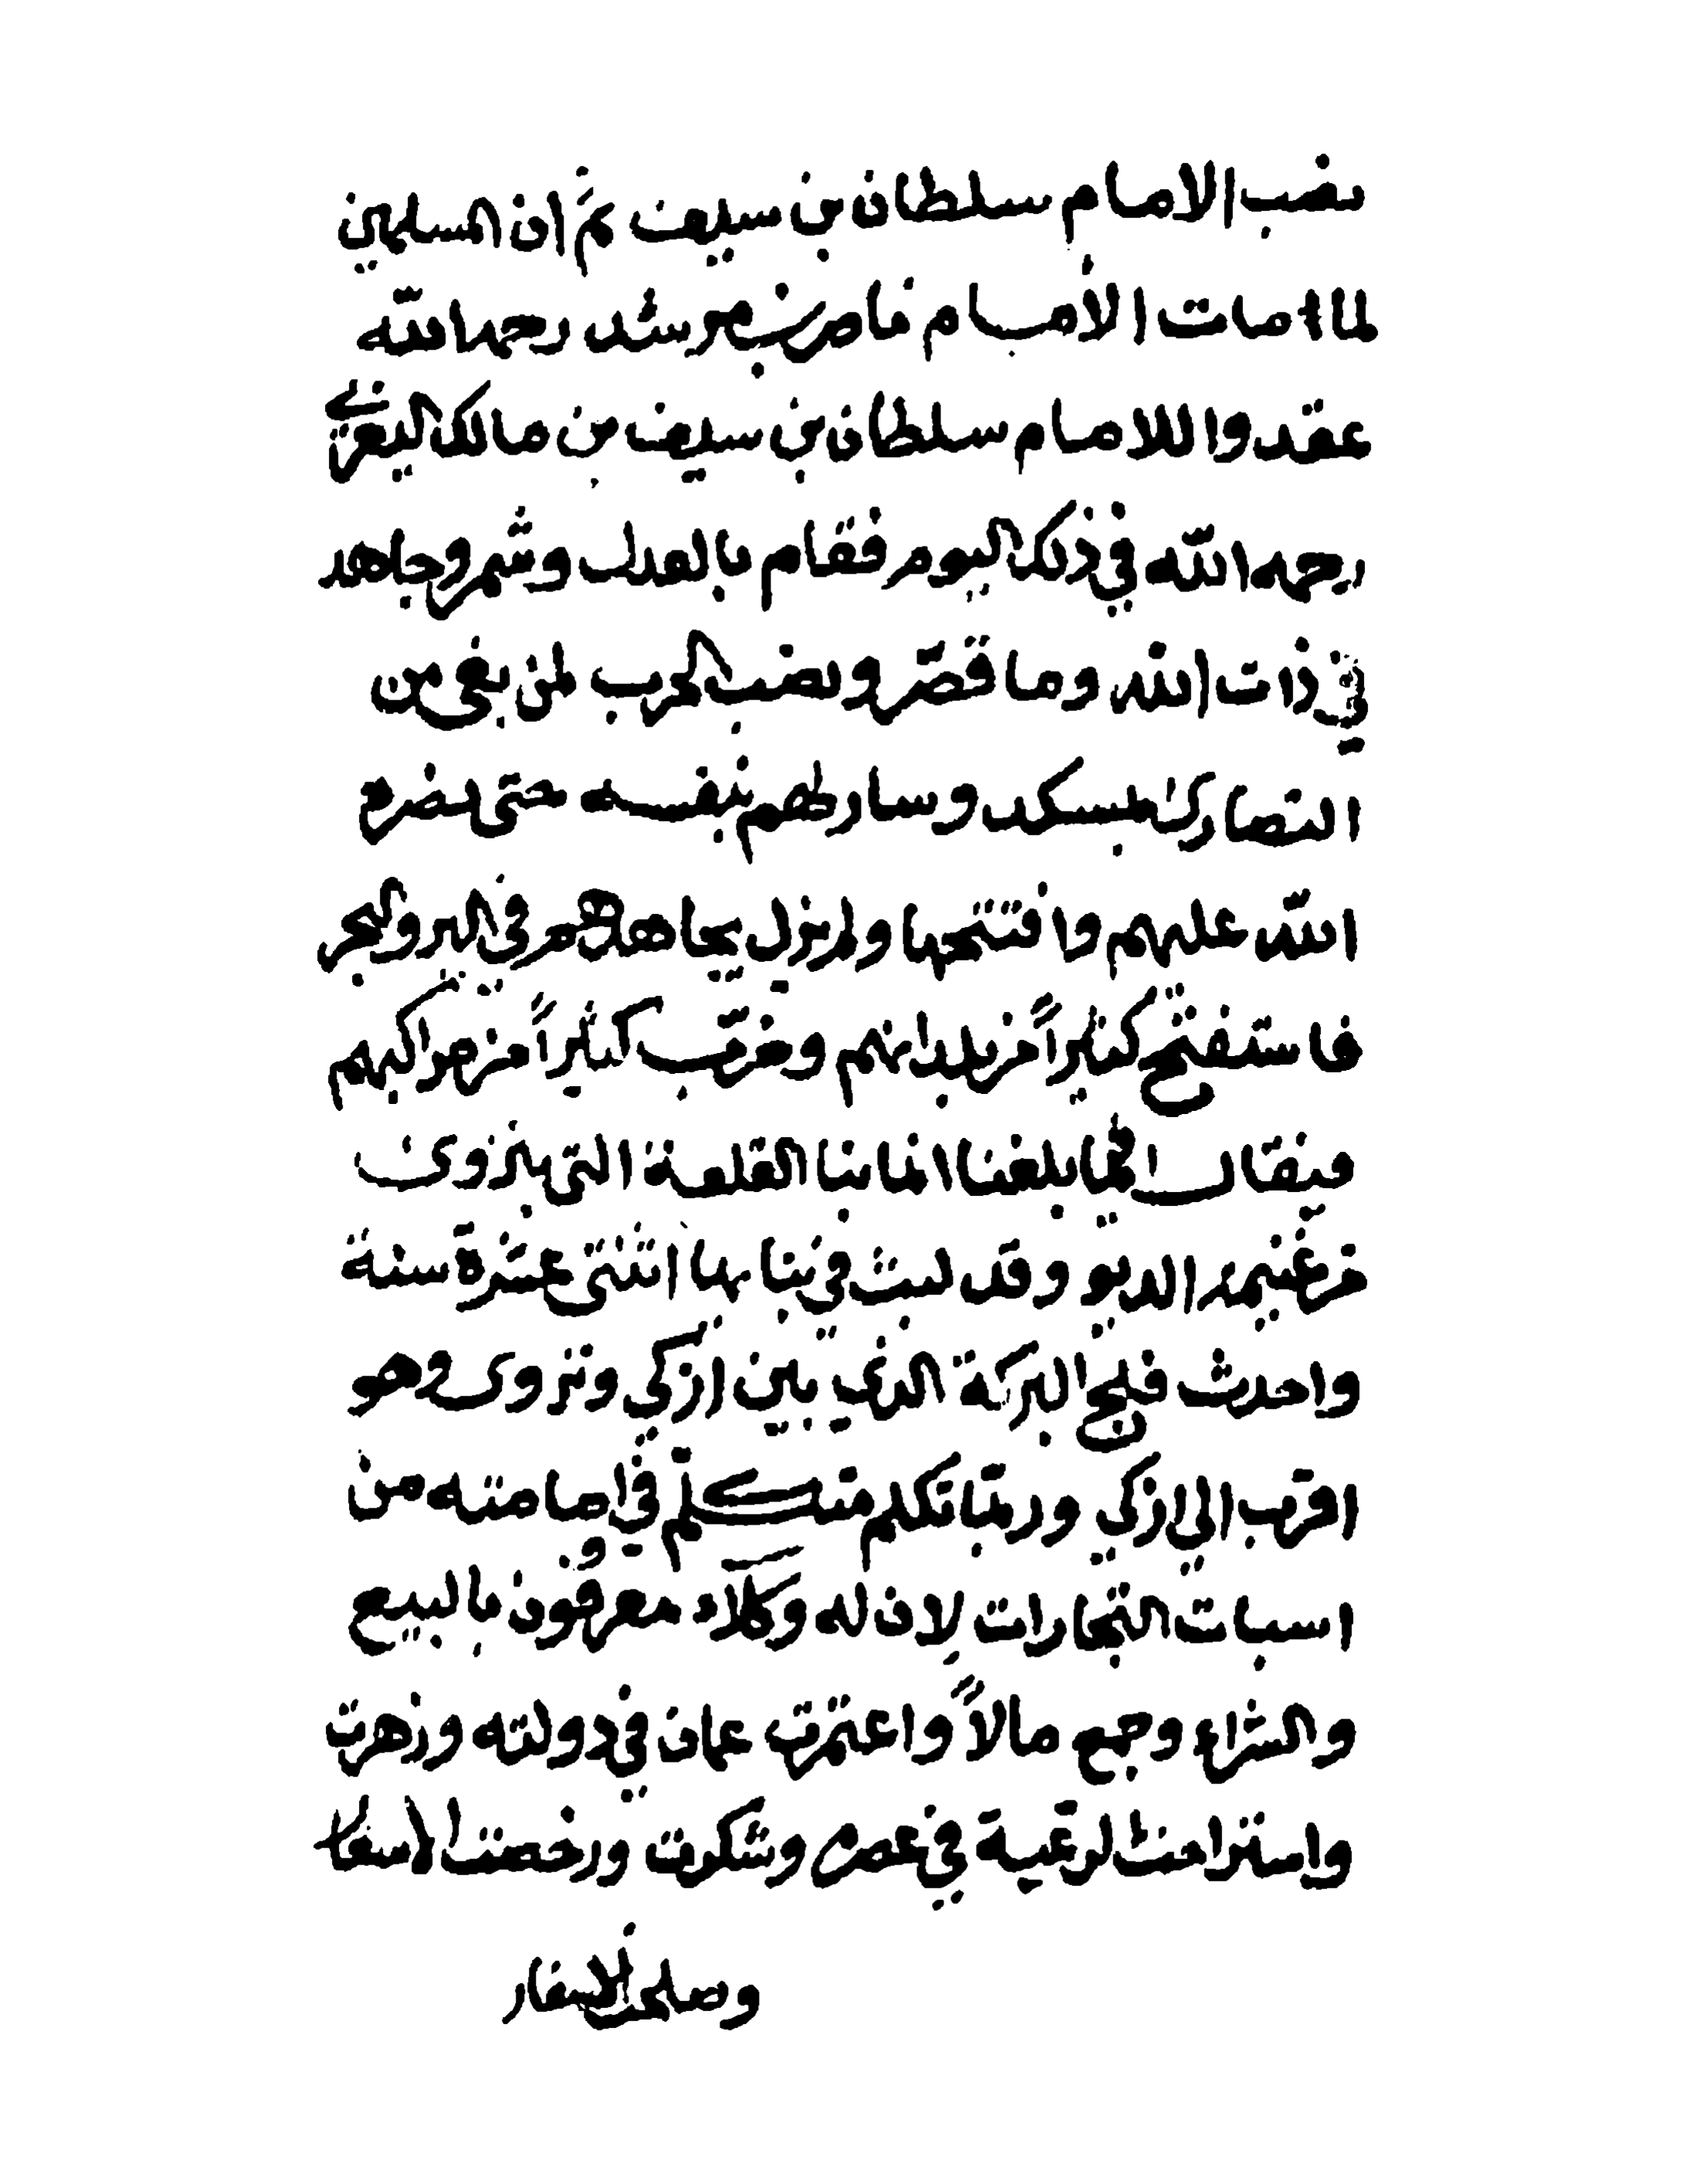 نصب الامام سلطان بن سيف ثم ان المسلمين
لما مات الامام ناصر بن مرشد رحمه الله
عقدوا للامام سلطان بن سيف بن مالك اليعربي
رحمه الله في ذلك اليوم فقام بالعدل وشمر وجاهد
في ذات الله وما قصّر ونصب الحرب لمن بقي من
النصارى بمسكد وسار لهم بنفسه حتى نصره
الله عليهم وافتتحها ولم يزل يجاهدهم في البر والبحر
فاستفتح كثيراً من بلدانهم وخرّب كثيراً من مراكبهم
ويقال فيما بلغنا انما بنا القلعة التي بنزوى
من غنيمة الديو وقد لبث في بنايها اثنتي عشرة سنة
واحدث فلج البركة الذي بين ازكي ونزوى وهو
اقرب الى ازكي وربّما تكلم متكلم في امامته من
اسباب التجارات لان له وكلآء معروفون بالبيع
والشراء وجمع مالاً واعتمرت عمان في دولته وزهرت
واستراحت الرعية في عصره وشكرت ورخصت الاسعار
وصلحت الاسفار